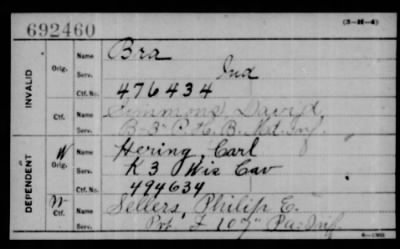 692460
(3-H-4)
INVALID
Orig.
Name
Bra
Serv.
Ind
Ctf. No.
476434
Ctf.
Name
Simmons, David
Serv.
B-3" P. H. B. Md. Inf.
DEPENDENT
W
Orig.
Name
Hering, Carl
Serv.
K 3 Wis Cav
Ctf. No.
494634
Ctf.
Name
Sellers, Philip E.
Serv.
Pvt. F 107" Pa. Inf.